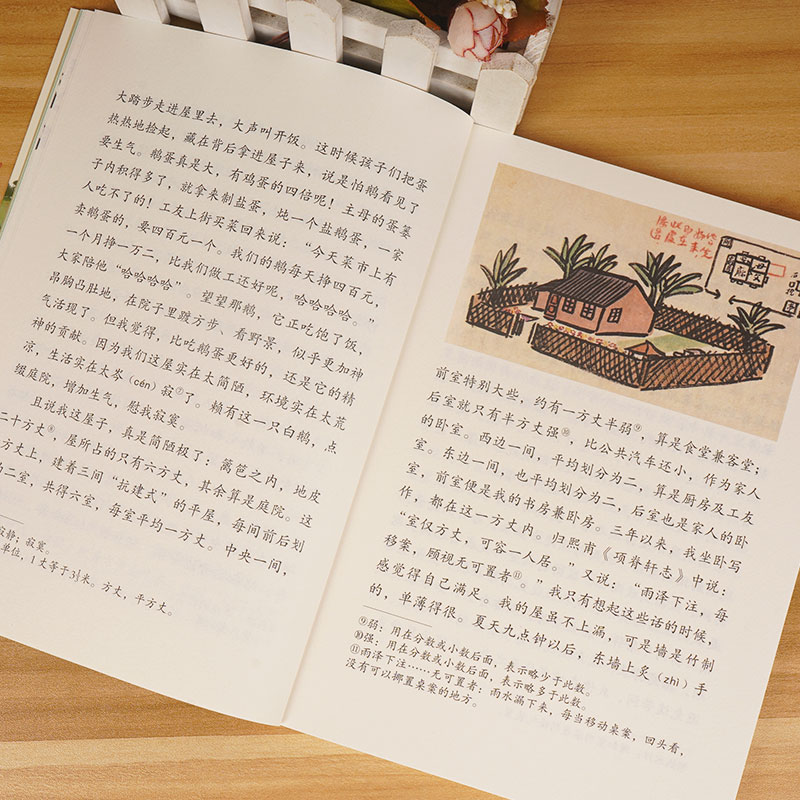 大踏步走进屋里去，大声叫开饭。这时候孩子们把蛋
热热地捡起，藏在背后拿进屋子来，说是怕鹅看见了
要生气。鹅蛋真是大，有鸡蛋的四倍呢！主母的蛋篓
子内积得多了，就拿来制盐蛋，炖一个盐鹅蛋，一家
人吃不了的！工友上街买菜回来说：“今天菜市上有
卖鹅蛋的，要四百元一个。我们的鹅每天挣四百元，
一个月挣一万二，比我们做工还好呢，哈哈哈哈。”
大家陪他“哈哈哈哈”。望望那鹅，它正吃饱了饭，
昂胸凸肚地，在院子里踱方步、看野景，似乎更加神
气活现了。但我觉得，比吃鹅蛋更好的，还是它的精
神的贡献。因为我们这屋实在太简陋，环境实在太荒
凉，生活实在太岑（cén）寂⑦了。赖有这一只白鹅，点
缀庭院，增加生气，慰我寂寞。
且说我这屋子，真是简陋极了：篱笆之内，地皮
二十方丈⑧，屋所占的只有六方丈，其余算是庭院。这
方丈上，建着三间“抗建式”的平屋，每间前后划
二室，共得六室，每室平均一方丈。中央一间，
寂静；寂寞。
单位，1丈等于3⅓米。方丈，平方丈。
前室特别大些，约有一方丈半弱⑨，算是食堂兼客堂；
后室就只有半方丈强⑩，比公共汽车还小，作为家人
的卧室。西边一间，平均划分为二，算是厨房及工友
室。东边一间，也平均划分为二，后室也是家人的卧
室，前室便是我的书房兼卧房。三年以来，我坐卧写
作，都在这一方丈内。归熙甫《项脊轩志》中说：
“室仅方丈，可容一人居。”又说：“雨泽下注，每
移案，顾视无可置者⑪。”我只有想起这些话的时候，
感觉得自己满足。我的屋虽不上漏，可是墙是竹制
的，单薄得很。夏天九点钟以后，东墙上炙（zhì）手
⑨弱：用在分数或小数后面，表示略少于此数。
⑩强：用在分数或小数后面，表示略多于此数。
⑪雨泽下注……无可置者：雨水漏下来，每当移动桌案，回头看，
没有可以挪置桌案的地方。